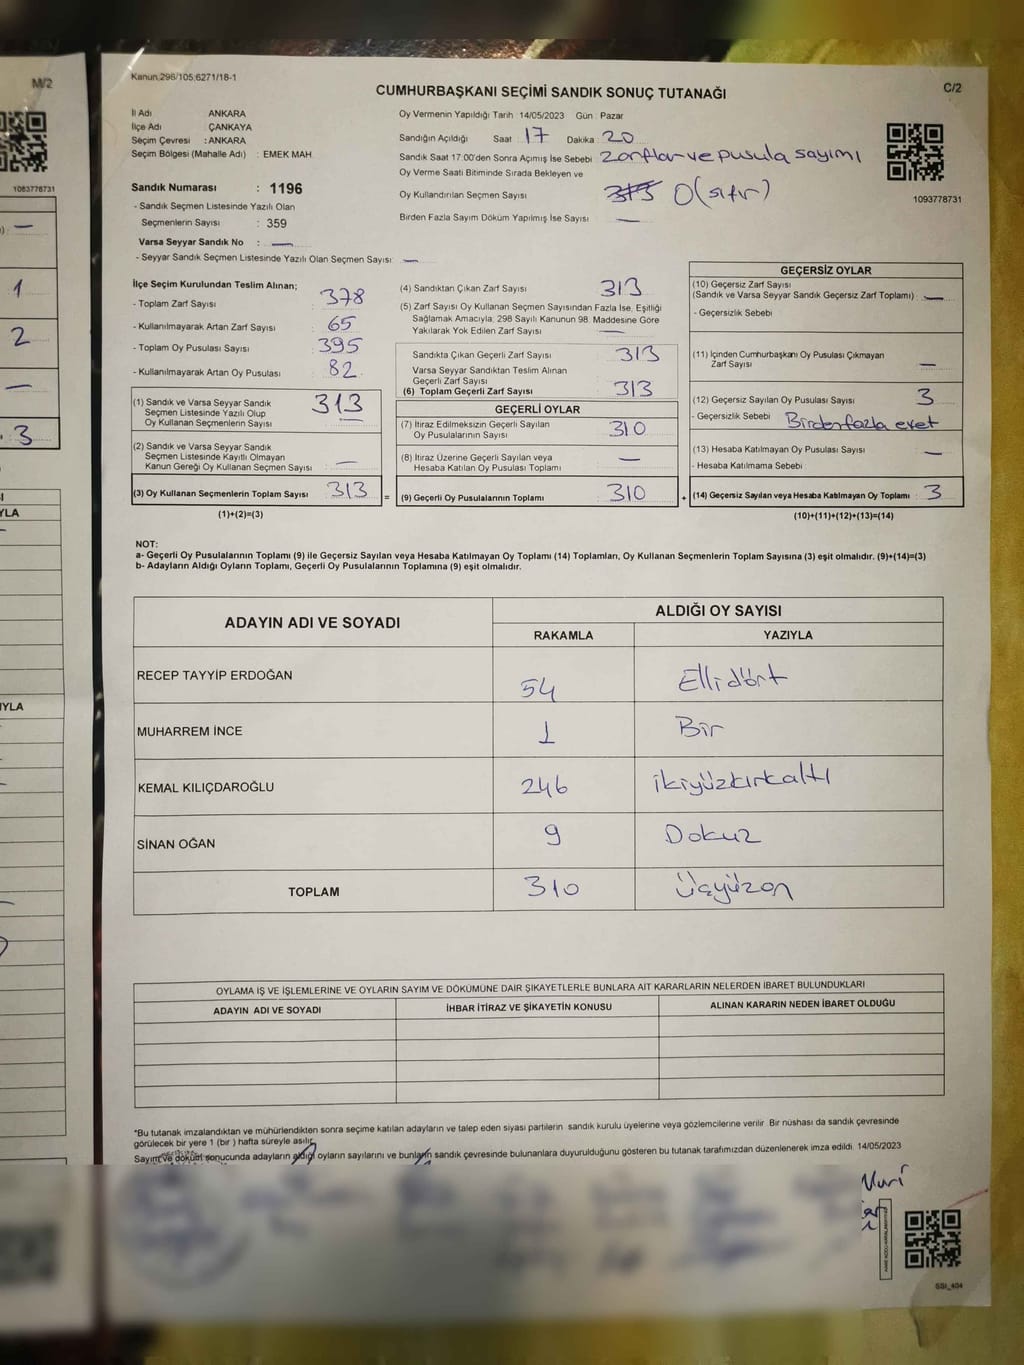 M/2
1083778731
1
2
3
YLA
IYLA
Kanun.298/105;6271/18-1
C/2
CUMHURBAŞKANI SEÇİMİ SANDIK SONUÇ TUTANAĞI
İl Adı ANKARA
İlçe Adı ÇANKAYA
Seçim Çevresi : ANKARA
Seçim Bölgesi (Mahalle Adı) : EMEK MAH.
Sandık Numarası : 1196
- Sandık Seçmen Listesinde Yazılı Olan
Seçmenlerin Sayısı : 359
Varsa Seyyar Sandık No : —
- Seyyar Sandık Seçmen Listesinde Yazılı Olan Seçmen Sayısı: —
Oy Vermenin Yapıldığı Tarih 14/05/2023 Gün : Pazar
Sandığın Açıldığı Saat 17 Dakika 20
Sandık Saat 17:00'den Sonra Açımış İse Sebebi Zarflar ve pusula sayımı
Oy Verme Saati Bitiminde Sırada Bekleyen ve
Oy Kullandırılan Seçmen Sayısı 0 (sıfır)
Birden Fazla Sayım Döküm Yapılmış İse Sayısı —
1093778731
İlçe Seçim Kurulundan Teslim Alınan;
- Toplam Zarf Sayısı 378
- Kullanılmayarak Artan Zarf Sayısı 65
- Toplam Oy Pusulası Sayısı 395
- Kullanılmayarak Artan Oy Pusulası 82
(1) Sandık ve Varsa Seyyar Sandık
Seçmen Listesinde Yazılı Olup
Oy Kullanan Seçmenlerin Sayısı 313
(2) Sandık ve Varsa Seyyar Sandık
Seçmen Listesinde Kayıtlı Olmayan
Kanun Gereği Oy Kullanan Seçmen Sayısı —
(3) Oy Kullanan Seçmenlerin Toplam Sayısı 313
(1)+(2)=(3)
=
(4) Sandıktan Çıkan Zarf Sayısı 313
(5) Zarf Sayısı Oy Kullanan Seçmen Sayısından Fazla İse, Eşitliği
Sağlamak Amacıyla; 298 Sayılı Kanunun 98. Maddesine Göre
Yakılarak Yok Edilen Zarf Sayısı —
Sandıkta Çıkan Geçerli Zarf Sayısı 313
Varsa Seyyar Sandıktan Teslim Alınan
Geçerli Zarf Sayısı
(6) Toplam Geçerli Zarf Sayısı 313
GEÇERLİ OYLAR
(7) İtiraz Edilmeksizin Geçerli Sayılan
Oy Pusulalarının Sayısı 310
(8) İtiraz Üzerine Geçerli Sayılan veya
Hesaba Katılan Oy Pusulası Toplamı —
(9) Geçerli Oy Pusulalarının Toplamı 310
+
GEÇERSİZ OYLAR
(10) Geçersiz Zarf Sayısı
(Sandık ve Varsa Seyyar Sandık Geçersiz Zarf Toplamı) : —
- Geçersizlik Sebebi
(11) İçinden Cumhurbaşkanı Oy Pusulası Çıkmayan
Zarf Sayısı —
(12) Geçersiz Sayılan Oy Pusulası Sayısı 3
- Geçersizlik Sebebi Birden fazla evet
(13) Hesaba Katılmayan Oy Pusulası Sayısı —
- Hesaba Katılmama Sebebi
(14) Geçersiz Sayılan veya Hesaba Katılmayan Oy Toplamı : 3
(10)+(11)+(12)+(13)=(14)
NOT:
a- Geçerli Oy Pusulalarının Toplamı (9) ile Geçersiz Sayılan veya Hesaba Katılmayan Oy Toplamı (14) Toplamları, Oy Kullanan Seçmenlerin Toplam Sayısına (3) eşit olmalıdır. (9)+(14)=(3)
b- Adayların Aldığı Oyların Toplamı, Geçerli Oy Pusulalarının Toplamına (9) eşit olmalıdır.
ADAYIN ADI VE SOYADI
ALDIĞI OY SAYISI
RAKAMLA YAZIYLA
RECEP TAYYİP ERDOĞAN 54 Ellidört
MUHARREM İNCE 1 Bir
KEMAL KILIÇDAROĞLU 246 ikiyüzkırkaltı
SİNAN OĞAN 9 Dokuz
TOPLAM 310 Üçyüzon
OYLAMA İŞ VE İŞLEMLERİNE VE OYLARIN SAYIM VE DÖKÜMÜNE DAİR ŞİKAYETLERLE BUNLARA AİT KARARLARIN NELERDEN İBARET BULUNDUKLARI
ADAYIN ADI VE SOYADI İHBAR İTİRAZ VE ŞİKAYETİN KONUSU ALINAN KARARIN NEDEN İBARET OLDUĞU
*Bu tutanak imzalandıktan ve mühürlendikten sonra seçime katılan adayların ve talep eden siyasi partilerin sandık kurulu üyelerine veya gözlemcilerine verilir. Bir nüshası da sandık çevresinde
görülecek bir yere 1 (bir ) hafta süreyle asılır.
Sayım ve döküm sonucunda adayların aldığı oyların sayılarını ve bunların sandık çevresinde bulunanlara duyurulduğunu gösteren bu tutanak tarafımızdan düzenlenerek imza edildi. 14/05/2023
Nuri
SSI_404